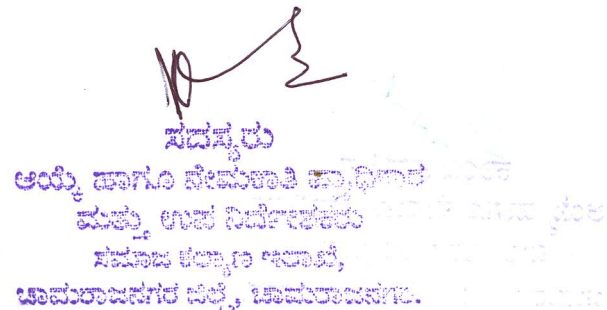 ಸದಸ್ಯರು
ಆಯ್ಕೆ ಹಾಗೂ ನೇಮಕಾತಿ ಪ್ರಾಧಿಕಾರ
ಮತ್ತು ಉಪ ನಿರ್ದೇಶಕರು
ಸಮಾಜ ಕಲ್ಯಾಣ ಇಲಾಖೆ,
ಚಾಮರಾಜನಗರ ಜಿಲ್ಲೆ, ಚಾಮರಾಜನಗರ.